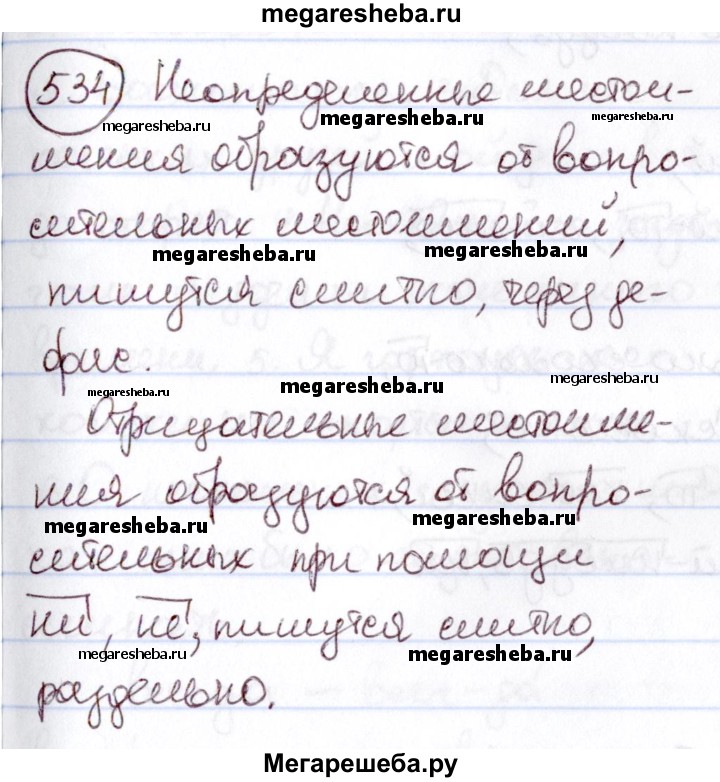 megaresheba.ru
534 Неопределенные местои-
megaresheba.ru megaresheba.ru megaresheba.ru
мения образуются от вопро-
сительных местоимений,
megaresheba.ru megaresheba.ru
пишутся слитно, через де-
фис.
megaresheba.ru megaresheba.ru megaresheba.ru
Отрицательные местоиме-
ния образуются от вопро-
megaresheba.ru megaresheba.ru
сительных при помощи
ни, не, пишутся слитно,
megaresheba.ru megaresheba.ru
раздельно.
Мегарешеба.ру